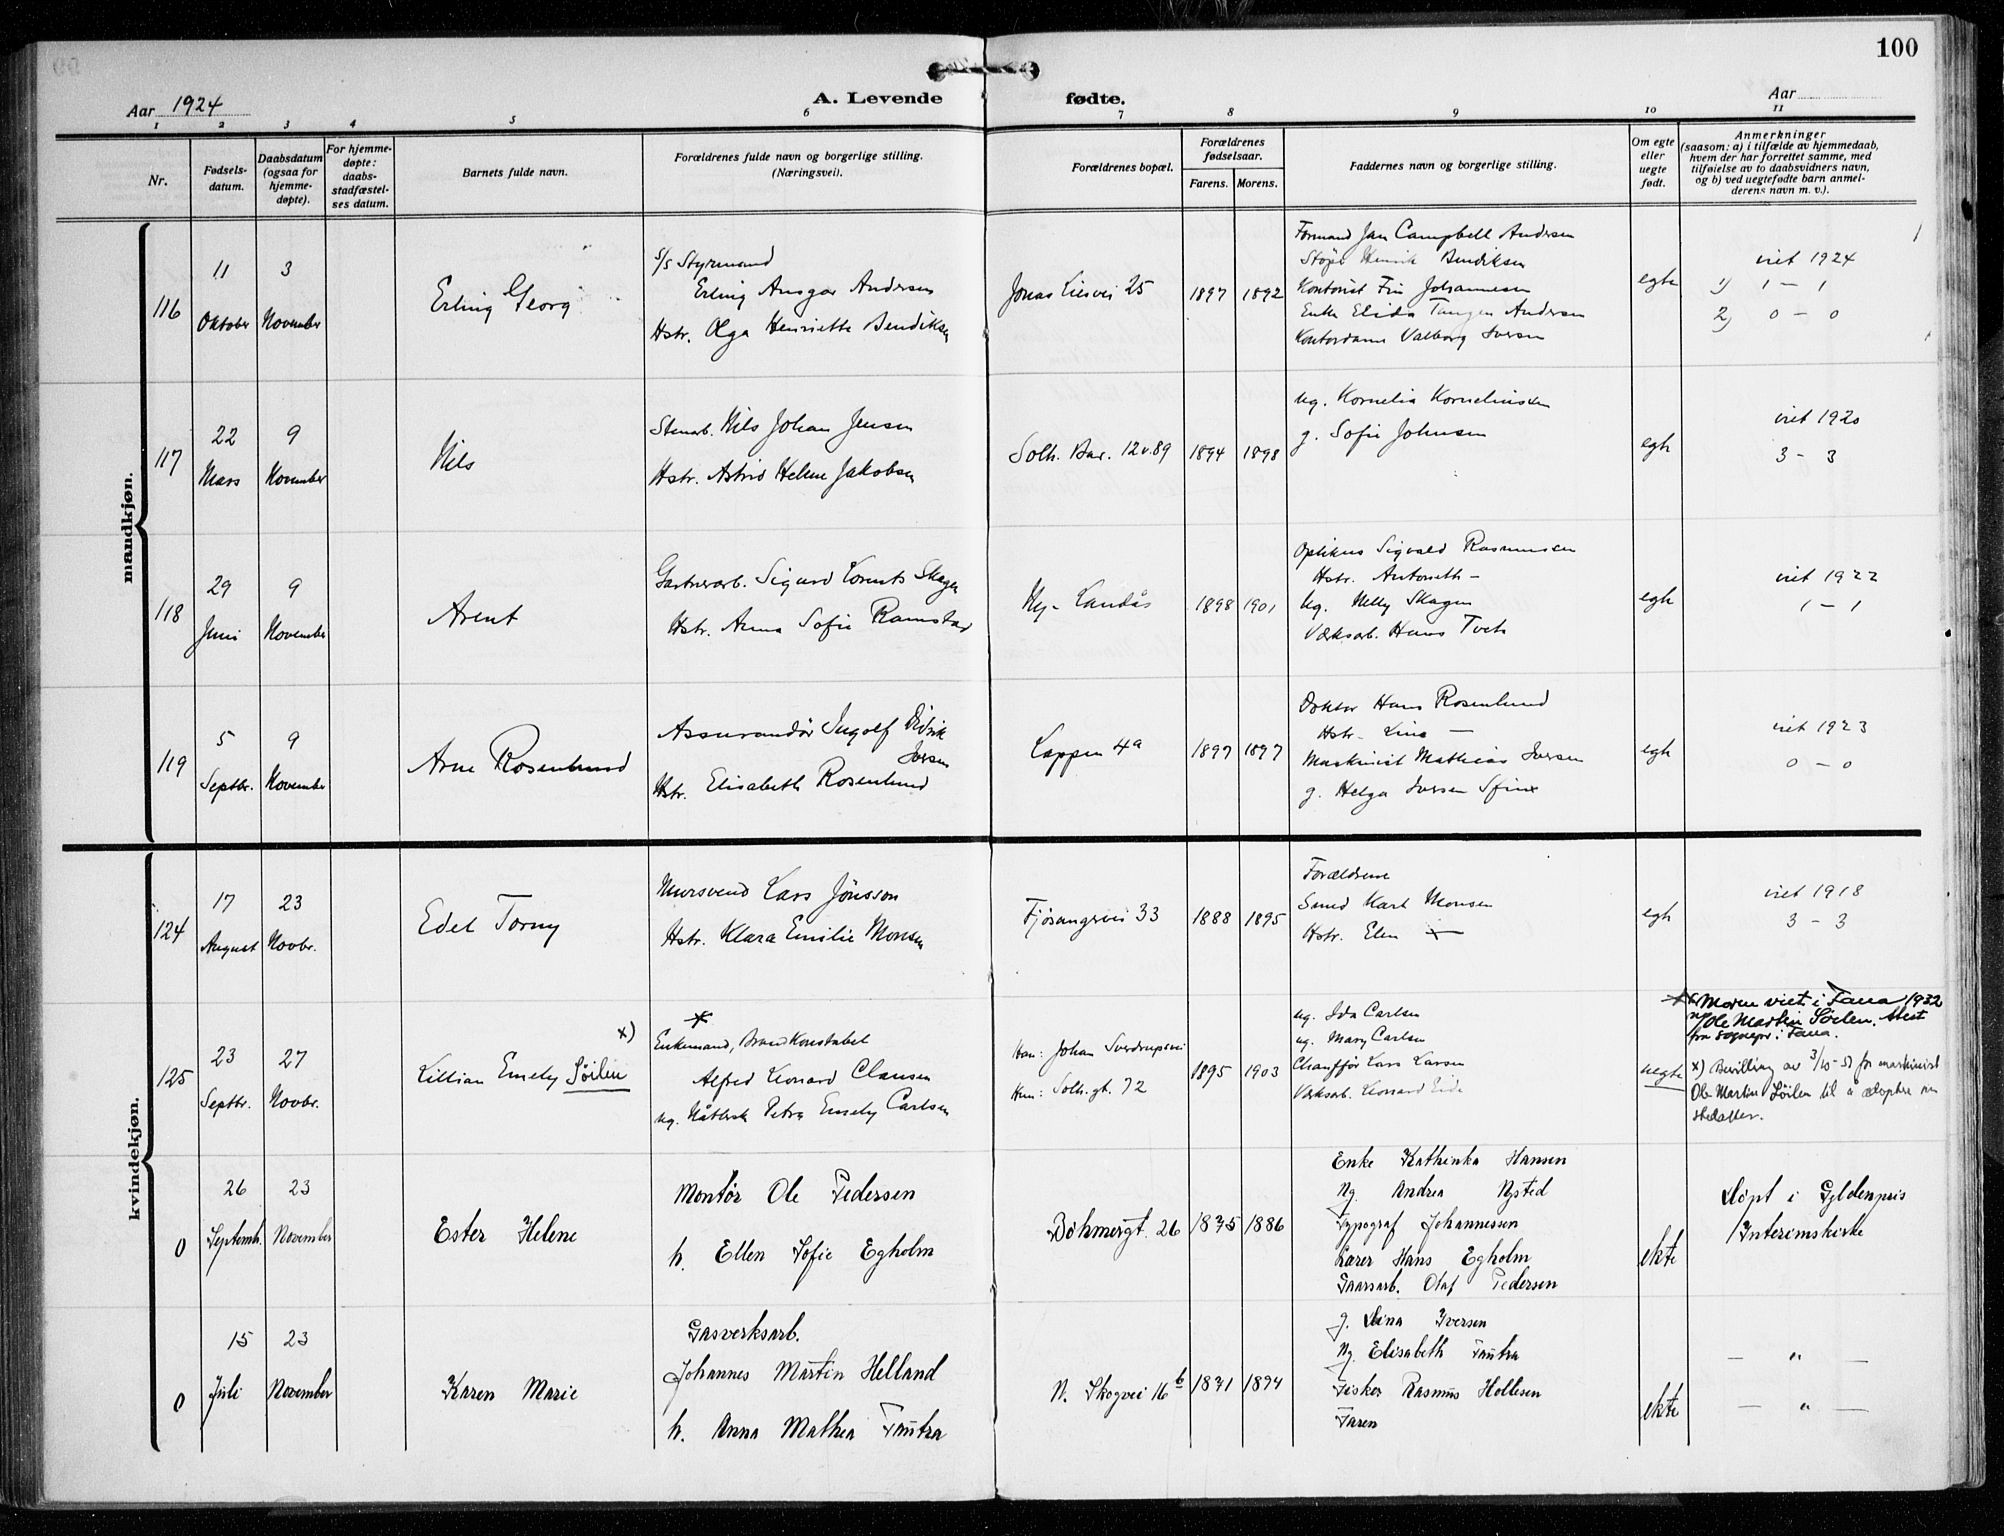 100
Aar 1924
A. Levende
fødte.
Aar
1 2 3 4 5 6 7 8 9 10 11
Nr.
Fødsels-
datum.
Daabsdatum
(ogsaa for
hjemme-
døpte).
For hjemme-
døpte:
daabs-
stadfæstel-
ses datum.
Barnets fulde navn.
Forældrenes fulde navn og borgerlige stilling.
(Næringsvei).
Forældrenes bopæl.
Forældrenes
fødselsaar.
Farens. Morens.
Faddernes navn og borgerlige stilling.
Om egte
eller
uegte
født.
Anmerkninger
(saasom: a) i tilfælde av hjemmedaab,
hvem der har forrettet samme, med
tilføielse av to daabsvidners navn,
og b) ved uegtefødte barn anmel-
derens navn m. v.).
mandkjøn.
116
11
Oktober
3
November
Erling Georg
S/S Styrmand
Erling Ansgar Andersen
Hstr. Olga Henriette Bendiksen
Jonas Liesvei 25
1897 1892
Formand Jan Campbell Andersen
Henrik Bendiksen
Kontorist Fin Johannesen
Enke Elida Tangen Andersen
Kontordame Valborg Iversen
egte
viet 1924
1) 1 - 1
2) 0 - 0
117
22
Mars
9
November
Nils
Stenarb. Nils Johan Jensen
Hstr. Astrid Helene Jakobsen
Solh. Bar. 12 v. 89
1894 1898
ug. Kornelia Korneliussen
g. Sofie Johnsen
egte
viet 1920
3 - 3
118
29
Juni
9
November
Arent
Gartnerarb. Sigurd Lorents Skagen
Hstr. Anna Sofie Ramstad
Ny-Landås
1898 1901
Optikus Sigvald Rasmussen
Hstr. Antoneth -
Ug. Nelly Skagen
Værksarb. Hans Tveth
egte
viet 1922
1 - 1
119
5
Septbr.
9
November
Arne Rosenlund
Assurandør Ingolf Didrik
Iversen
Hstr. Elisabeth Rosenlund
Lappen 4a
1897 1897
Doktor Hans Rosenlund
Hstr. Lina -
Maskinist Mathias Iversen
g. Helga Iversen Sfinx
egte
viet 1923
0 - 0
kvindekjøn.
124
17
August
23
Novbr.
Edel Torny
Mursvend Lars Jönsson
Hstr. Klara Emilie Monsen
Fjøsangervei 33
1888 1895
Forældrene
Smed Karl Monsen
Hstr. Elen -
egte
viet 1918
3 - 3
125
23
Septbr.
27
Novbr.
Lillian Emely Söilen x)
*
Enkemand, Brandkonstabel
Alfred Leonard Clausen
ug. Nåtlersk Petra Emely Carlsen
Han: Johan Sverdrupsvei
Hun: Solh. gt. 72
1895 1903
ug. Ida Carlsen
ug. Mary Carlsen
Chauffør Lars Larsen
Værksarb. Leonard Eide
uegte
* Moren viet i Fana 1932
m/ Ole Martin Söilen. Attest
fra sognepr. i Fana.
x) Bevilling av 3/10-51 for maskinist
Ole Martin Söilen til å adoptere sin
stedatter.
0
26
Septemb.
23
November
Ester Helene
Montør Ole Pedersen
h. Ellen Sofie Egholm
Böhmergt. 26
1875 1886
Enke Kathinka Hansen
Ng. Andrea Nysted
Typograf Johannessen
Lærer Hans Egholm
Gaarsarb. Olaf Pedersen
ekte
Døpt i Gyldenpris
Interimskirke
0
15
Juli
23
November
Karen Marie
Gasverksarb.
Johannes Martin Helland
h. Anna Mathea Tautra
N. Skogvei 16b
1871 1894
g. Dina Iversen
Ng. Elisabeth Tautra
Fisker Rasmus Hollesen
Faren
ekte
- " -
- " -